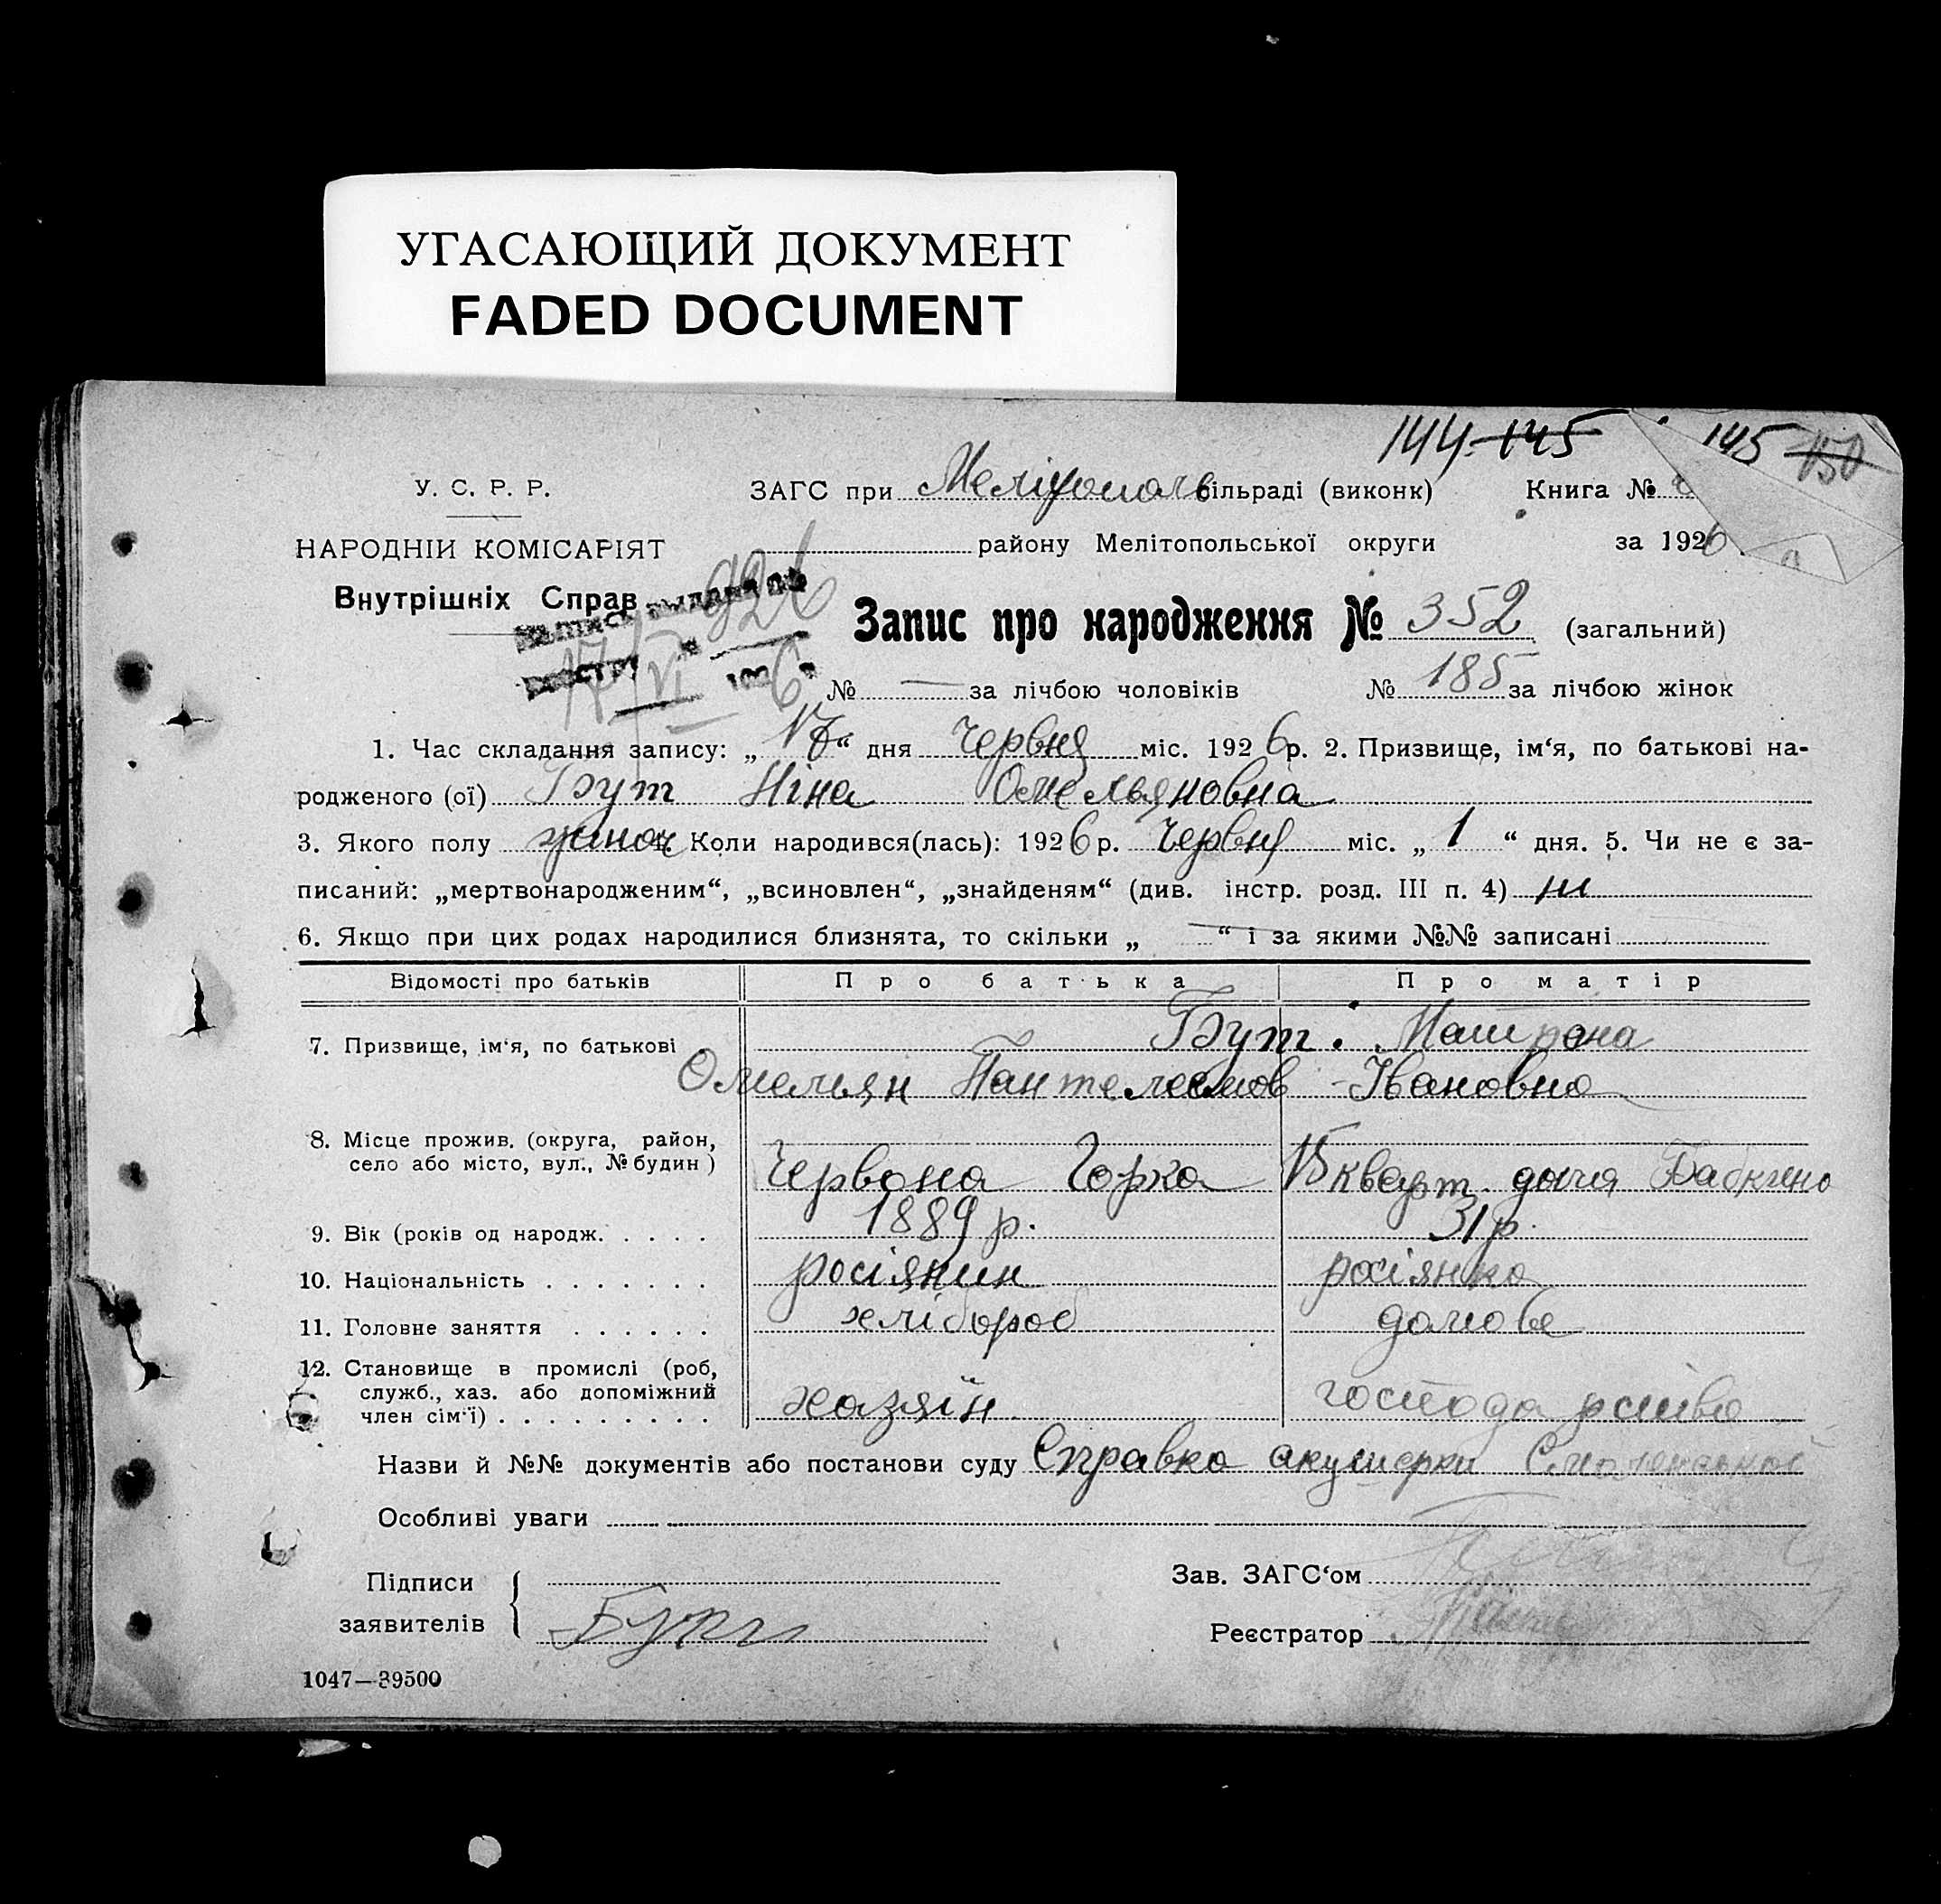 УГАСАЮЩИЙ ДОКУМЕНТ
FADED DOCUMENT
144 145 145 150
У. С. Р. Р.
ЗАГС при Меліуополь сільраді (виконк) Книга №
НАРОДНІЙ КОМІСАРІЯТ
району Мелітопольської округи за 1926
Внутрішніх Справ
926
17/VI 1926
Запис про народження № 352 (загальний)
№ — за лічбою чоловіків № 185 за лічбою жінок
1. Час складання запису: „17“ дня Червня міс. 1926 р. 2. Призвище, ім‘я, по батькові на-
родженого (ої) Бут Ніна Омельяновна
3. Якого полу жіноч Коли народився(лась): 1926 р. Червня міс. „ 1 “ дня. 5. Чи не є за-
писаний: „мертвонародженим“, „всиновлен“, „знайденям“ (див. інстр. розд. III п. 4) ні
6. Якщо при цих родах народилися близнята, то скільки „ — “ і за якими №№ записані
Відомості про батьків Про батька Про матір
7. Призвище, ім‘я, по батькові Бут. Матрона
Омельян Пантелеемов Івановна
8. Місце прожив. (округа, район,
село або місто, вул., № будин)
Червона Горка 15 кварт. дача Бабкіно
9. Вік (років од народж. . . . . 1889 р. 31 р.
10. Національність . . . . . . . росіянин росіянка
11. Головне заняття . . . . . . хлібороб домове
12. Становище в промислі (роб,
служб., хаз. або допоміжний
член сім‘ї) . . . . . . . . . хазяїн господарство
Назви й №№ документів або постанови суду Справка акушерки Смоленської
Особливі уваги
Підписи
заявителів
Бут
Зав. ЗАГС‘ом
Реєстратор
1047—39500